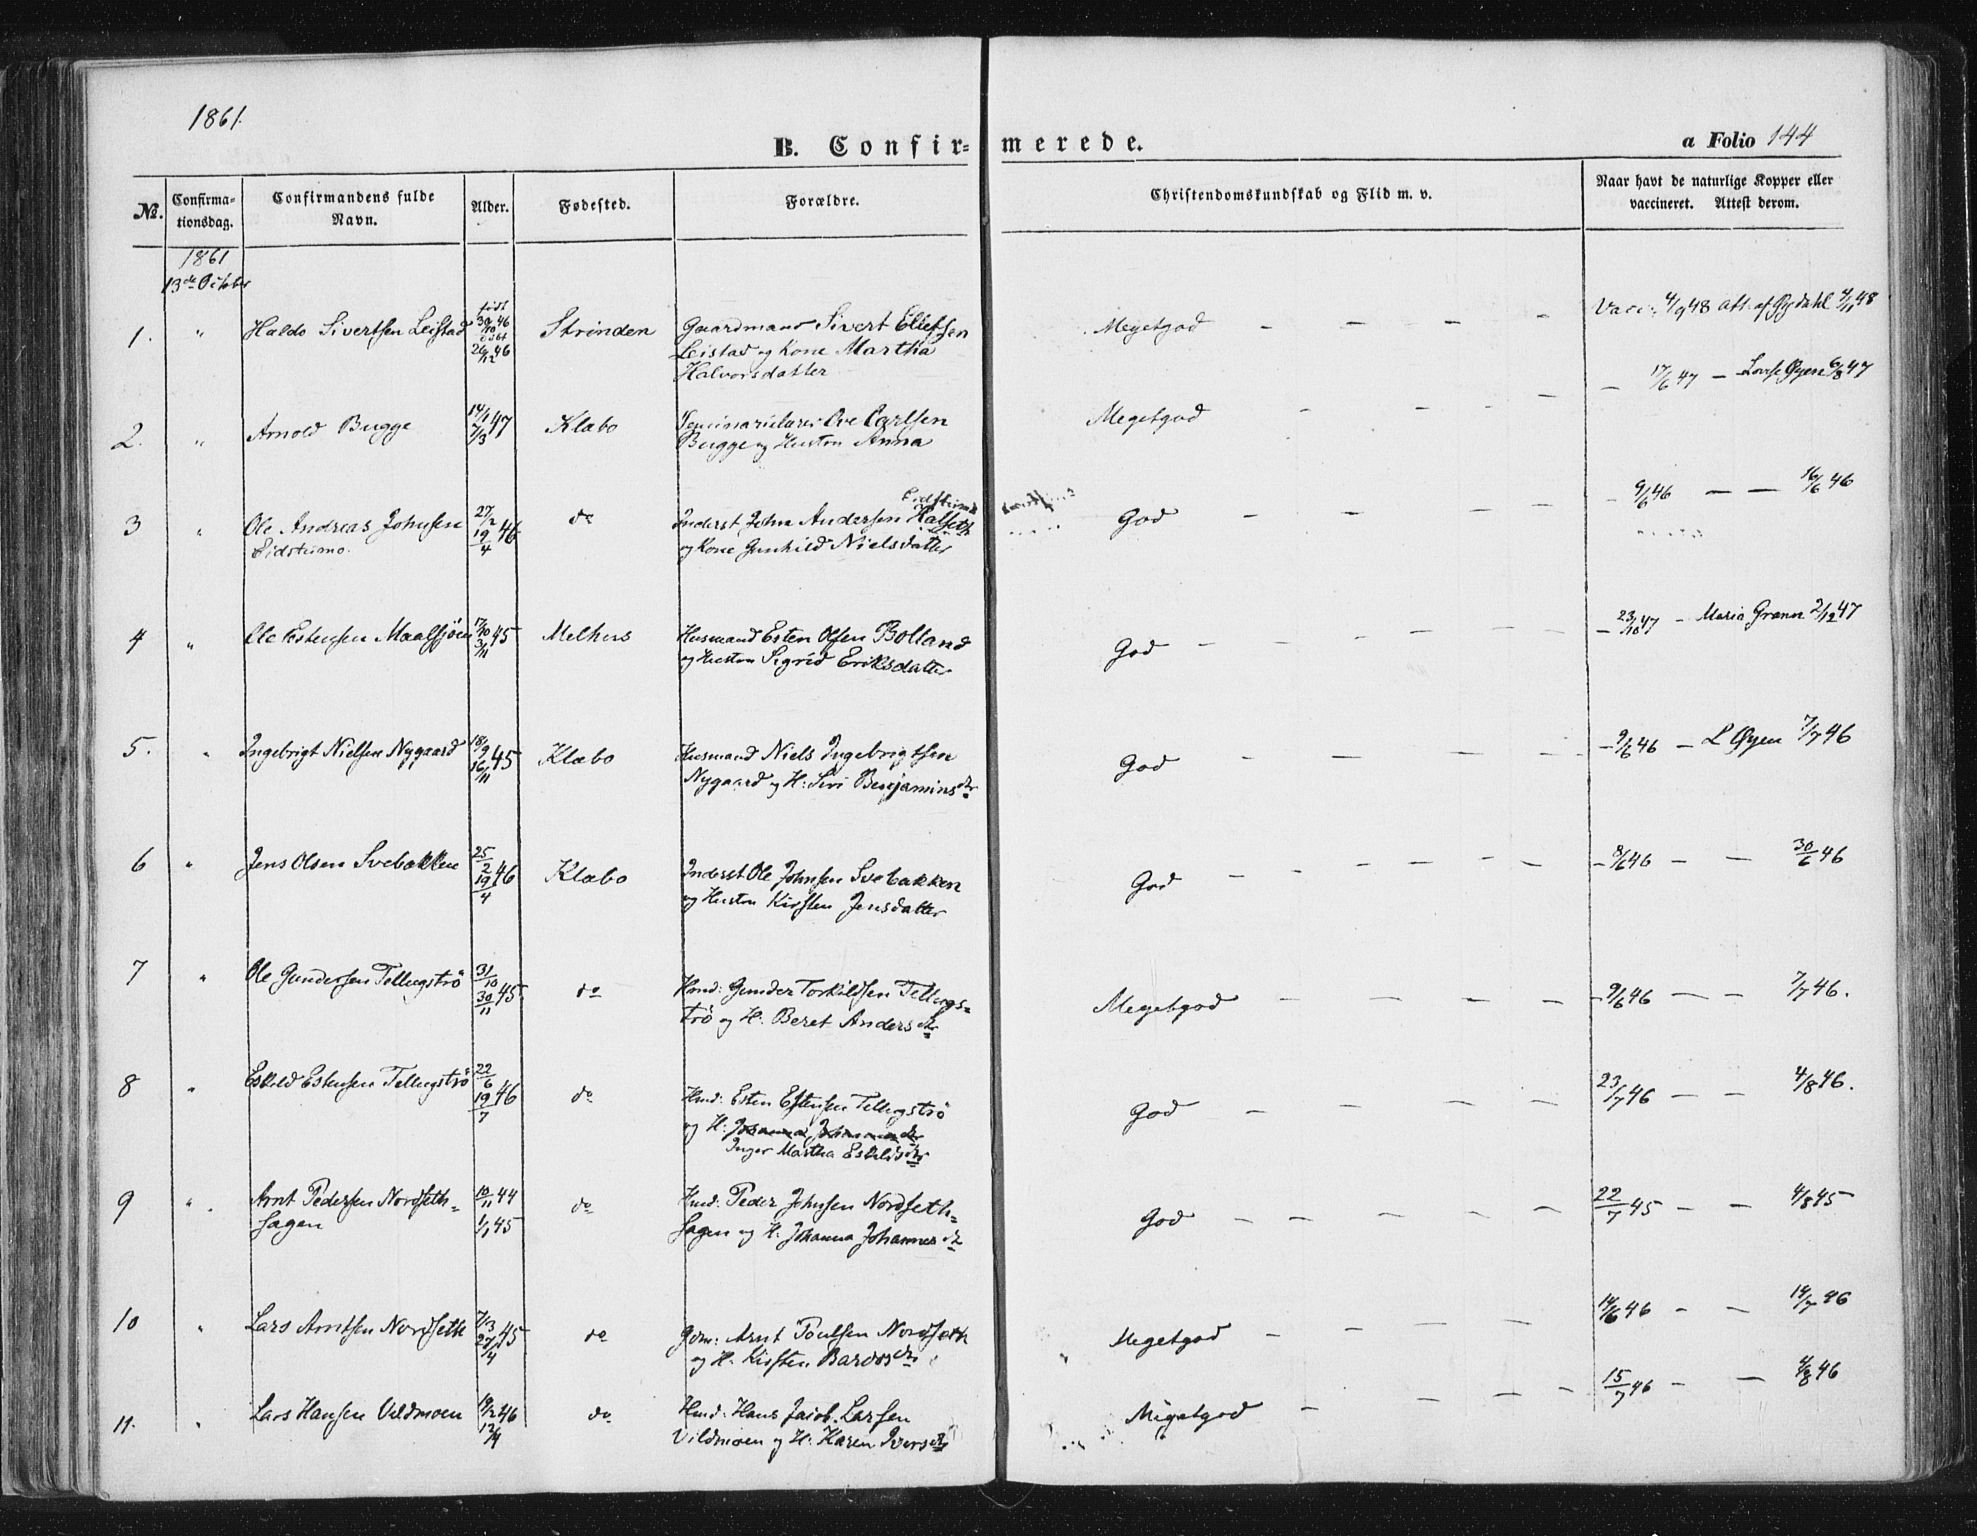 1861.
B. Confirmerede.
a Folio 144
No. Confirmationsdag. Confirmandens fulde Navn. Alder. Fødested. Forældre. Christendomskundskab og Flid m. v. Naar havt de naturlige Kopper eller vaccineret. Attest derom.
1861
13de October
1. " Haldo Sivertsen Leistad født 30/10 46 døbt 26/12 46 Strinden Gaardmand Sivert Eliefsen
Leistad og Kone Martha
Halvorsdatter
Megetgod — — — — Vacc: 4/9 48 Att. af Gysdahl 4/11 48
2. " Arnold Bugge 14/1 47 7/3 Klæbo Seminarielærer Ove Carlsen
Bugge og Hustru Anna
Megetgod — — — — 17/6 47 — Lovise Øyen 6/8 47
3 " Ole Andreas Johnsen
Eidstumo.
27/2 46 19/4 do Inderst John Andersen Halseth
og Kone Gunhild Nielsdatter
God — — — — — 9/6 46 — — 16/6 46
4 " Ole Estensen Maalsjøen 17/10 45 3/11 Melhus Husmand Esten Olsen Bolland
og Hustru Sigrid Eriksdatter
God — — — — — — — 23/10 47 — Maria Grønn 2/12 47
5. " Ingebrigt Nielsen Nygaard 18/9 45 16/11 Klæbo Husmand Niels Ingebrigtsen
Nygaard og H: Siri Benjaminsdtr
God — — — — — — 9/6 46 — L Øyen 7/7 46
6 " Jens Olsen Svebakken 25/2 46 19/4 Klæbo Inderst Ole Johnsen Svebakken
og Hustru Kirsten Jensdatter
God — — — — — — — 8/6 46 — — 30/6 46
7 " Ole Gundersen Tellugstrø 31/10 45 30/11 do Hmd: Gunder Torkildsen Tellugs=
trø og H: Beret Andersdtr
Megetgod — — — — — — 9/6 46 — — 7/7 46.
8 " Eskild Estensen Tellugstrø 22/6 46 19/7 do Hmd: Esten Estensen Tellugstrø
og H: Johanna Johannesdtr
Inger Martha Eskildsdtr
God — — — — — 23/7 46 — — 4/8 46.
9 " Arnt Pedersen Nordseth=
hagen
10/11 44 1/1 45 do Hmd: Peder Johnsen Nordseth=
hagen og H: Johanna Johannesdtr
God — — — — — — 22/7 45 — — 4/8 45
10 " Lars Arntsen Nordseth 7/3 45 27/4 do Gdm: Arnt Poulsen Nordseth
og H: Kirsten Bardosdtr
Megetgod — — — — — 14/6 46 — — 14/7 46
11. " Lars Hansen Vildmoen 19/2 46 12/4 do Hmd: Hans Jacob Larsen
Vildmoen og H: Karen Iversdtr
Megetgod — — — — 15/7 46 — — 4/8 46